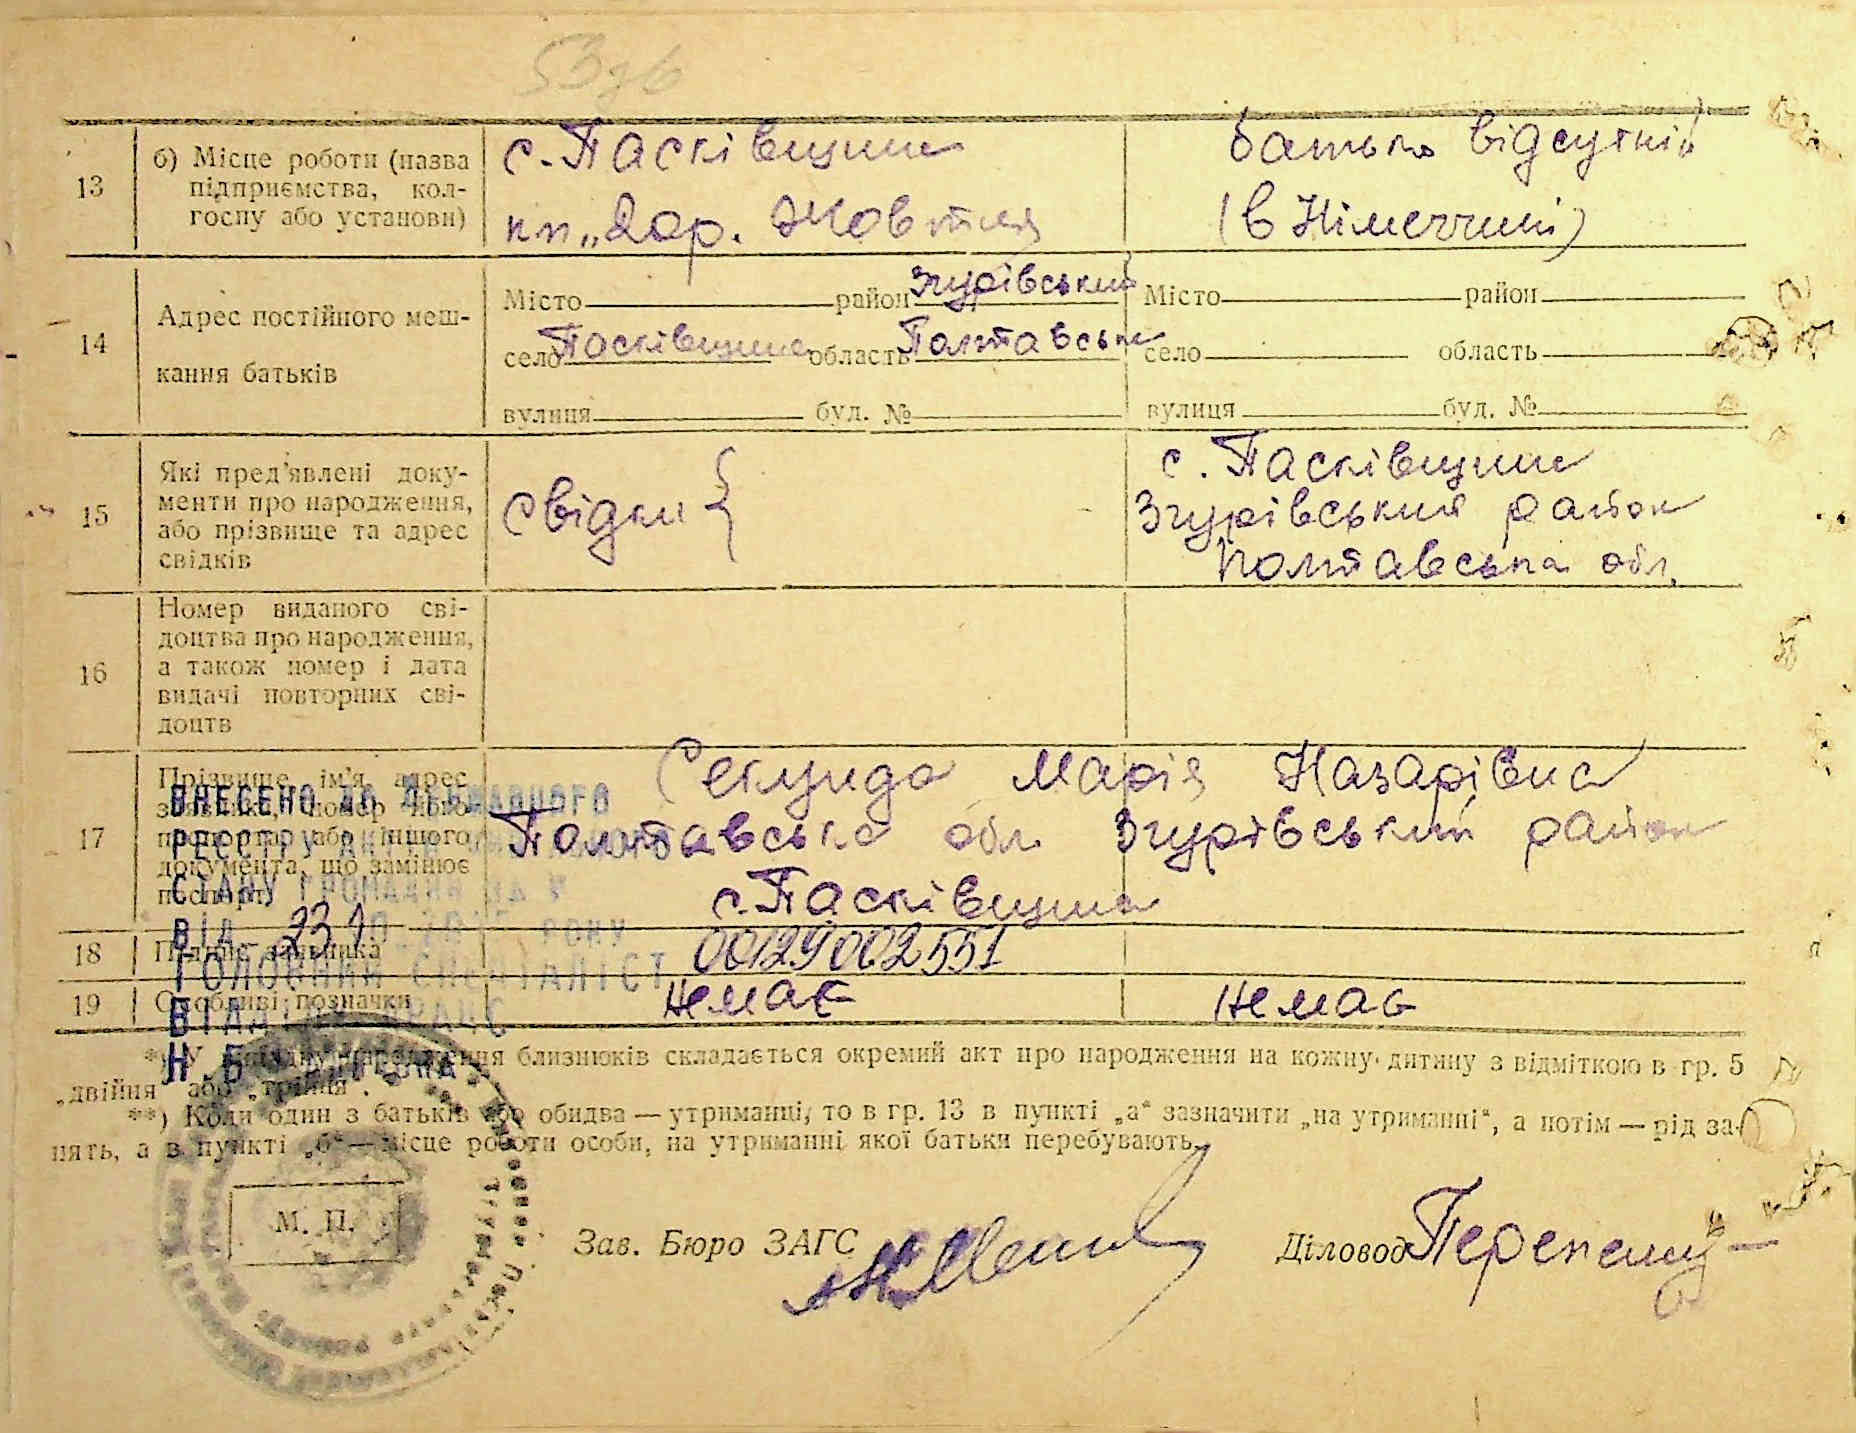 13
б) Місце роботи (назва
підприємства, кол-
госпу або установи)
с. Пасківщина
кп „Дор. Жовтня
батько відсутній
(в Німеччині)
14
Адрес постійного меш-
кання батьків
Місто район Згурівський
село Пасківщина область Полтавська
вулиця буд. №
Місто район
село область
вулиця буд. №
15
Які пред'явлені доку-
менти про народження,
або прізвище та адрес
свідків
свідки {
с. Пасківщина
Згурівський район
Полтавська обл.
16
Номер виданого сві-
доцтва про народження,
а також номер і дата
видачі повторних сві-
доцтв
17
Прізвище, ім'я, адрес
паспорта або іншого
документа, що замінює
паспорт
Секунда Марія Назарівна
Полтавська обл Згурівський район
с. Пасківщина
ВНЕСЕНО ДО ДЕРЖАВНОГО
РЕЄСТРУ АКТІВ ЦИВІЛЬНОГО
СТАНУ ГРОМАДЯН ЗА №
ВІД РОКУ
ГОЛОВНИЙ СПЕЦІАЛІСТ
ВІДДІЛУ ДРАЦС
Н.Б.
18
Підпис заявника
00129002551
19
Особливі позначки
немає
немає
*) У випадку народження близнюків складається окремий акт про народження на кожну дитину з відміткою в гр. 5
„двійня" або „трійня".
**) Коли один з батьків або обидва — утриманці, то в гр. 13 в пункті „а" зазначити „на утриманні", а потім — рід за-
нять, а в пункті „б" — місце роботи особи, на утриманні якої батьки перебувають.
М. П.
Зав. Бюро ЗАГС
Діловод